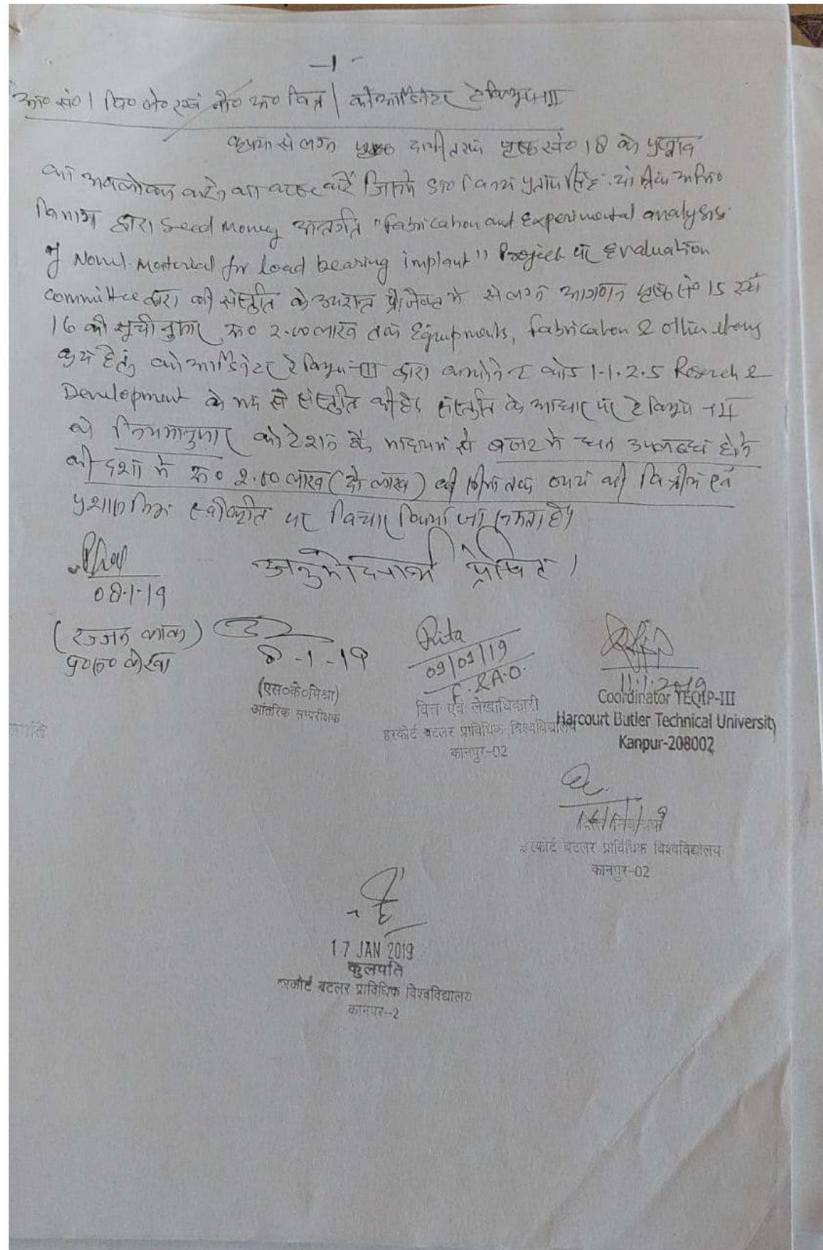 -1-
क्र० सं० 1 वि० ले० एवं नी० अ० वित्त / कोआर्डिनेटर टेक्यूप-III
कृपया से लग्न पृष्ठ दायीं तरफ पृष्ठ सं० 18 के प्रस्ताव
का अवलोकन करने का कष्ट करें जिसमें डा० विनय प्रताप सिंह, यांत्रिक अभि०
विभाग द्वारा Seed Money अन्तर्गत "Fabrication and Experimental analysis
of Novel Material for load bearing implant" Project पर Evaluation
Committee द्वारा की संस्तुति के उपरान्त प्रोजेक्ट में संलग्न आगणन पृष्ठ सं० 15 एवं
16 की सूचीनुसार रू० 2.00 लाख तक Equipments, Fabrication & other items
क्रय हेतु कोआर्डिनेटर टेक्यूप-III द्वारा कम्पोनेन्ट कोड 1.1.2.5 Reserch &
Development के मद से संस्तुति की है। संस्तुति के आधार पर टेक्यूप-III
के नियमानुसार कोटेशन के माध्यम से बजट में धन उपलब्ध होने
की दशा में रू० 2.00 लाख (दो लाख) की सीमा तक व्यय की वित्तीय एवं
प्रशासनिक स्वीकृति पर विचार किया जा सकता है।
अनुमोदनार्थ प्रेषित।
08-1-19
8-1-19
(एस०के०मिश्रा)
आंतरिक सम्परीक्षक
Rita
09/01/19
F. & A.O.
वित्त एवं लेखाधिकारी
हरकोर्ट बटलर प्राविधिक विश्वविद्यालय
कानपुर-02
11.1.2019
Coordinator TEQIP-III
Harcourt Butler Technical University
Kanpur-208002
हरकोर्ट बटलर प्राविधिक विश्वविद्यालय
कानपुर-02
17 JAN 2019
कुलपति
हरकोर्ट बटलर प्राविधिक विश्वविद्यालय
कानपुर-2